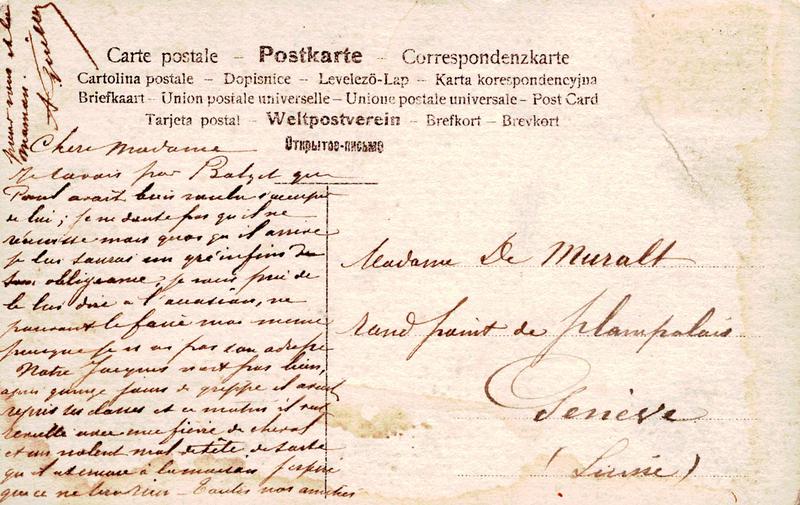 Carte postale – Postkarte – Correspondenzkarte
Cartolina postale – Dopisnice – Levelező-Lap – Karta korespondencyjna
Briefkaart – Union postale universelle – Unione postale universale – Post Card
Tarjeta postal – Weltpostverein – Brefkort – Brevkort
Открытое-письмо
Chere Madame
Je savais par que
Paul avait bien voulu s'occuper
de lui; je ne doute pas qu'il ne
réussisse mais quoi qu'il arrive
je lui saurai un gré infini de
son obligeance; je vous prie de
le lui dire à l'occasion, ne
pouvant le faire moi même
puisque je n'ai pas son adresse
Notre Jacques n'est pas bien,
après quinze jours de grippe il avait
repris ses classes et ce matin il s'est
réveillé avec une fièvre de cheval
et un violent mal de tête, de sorte
qu'il à la maison J'espère
que ce ne sera rien – Toutes nos amitiés
pour vous et la
maman.
Madame De Muralt
rond point de plainpalais
Genève
(Suisse)